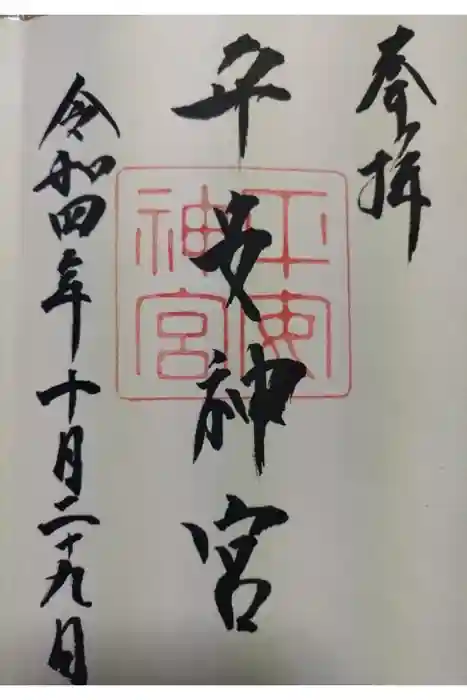 奉拝
平安神宮
平安神宮
令和四年十月二十九日